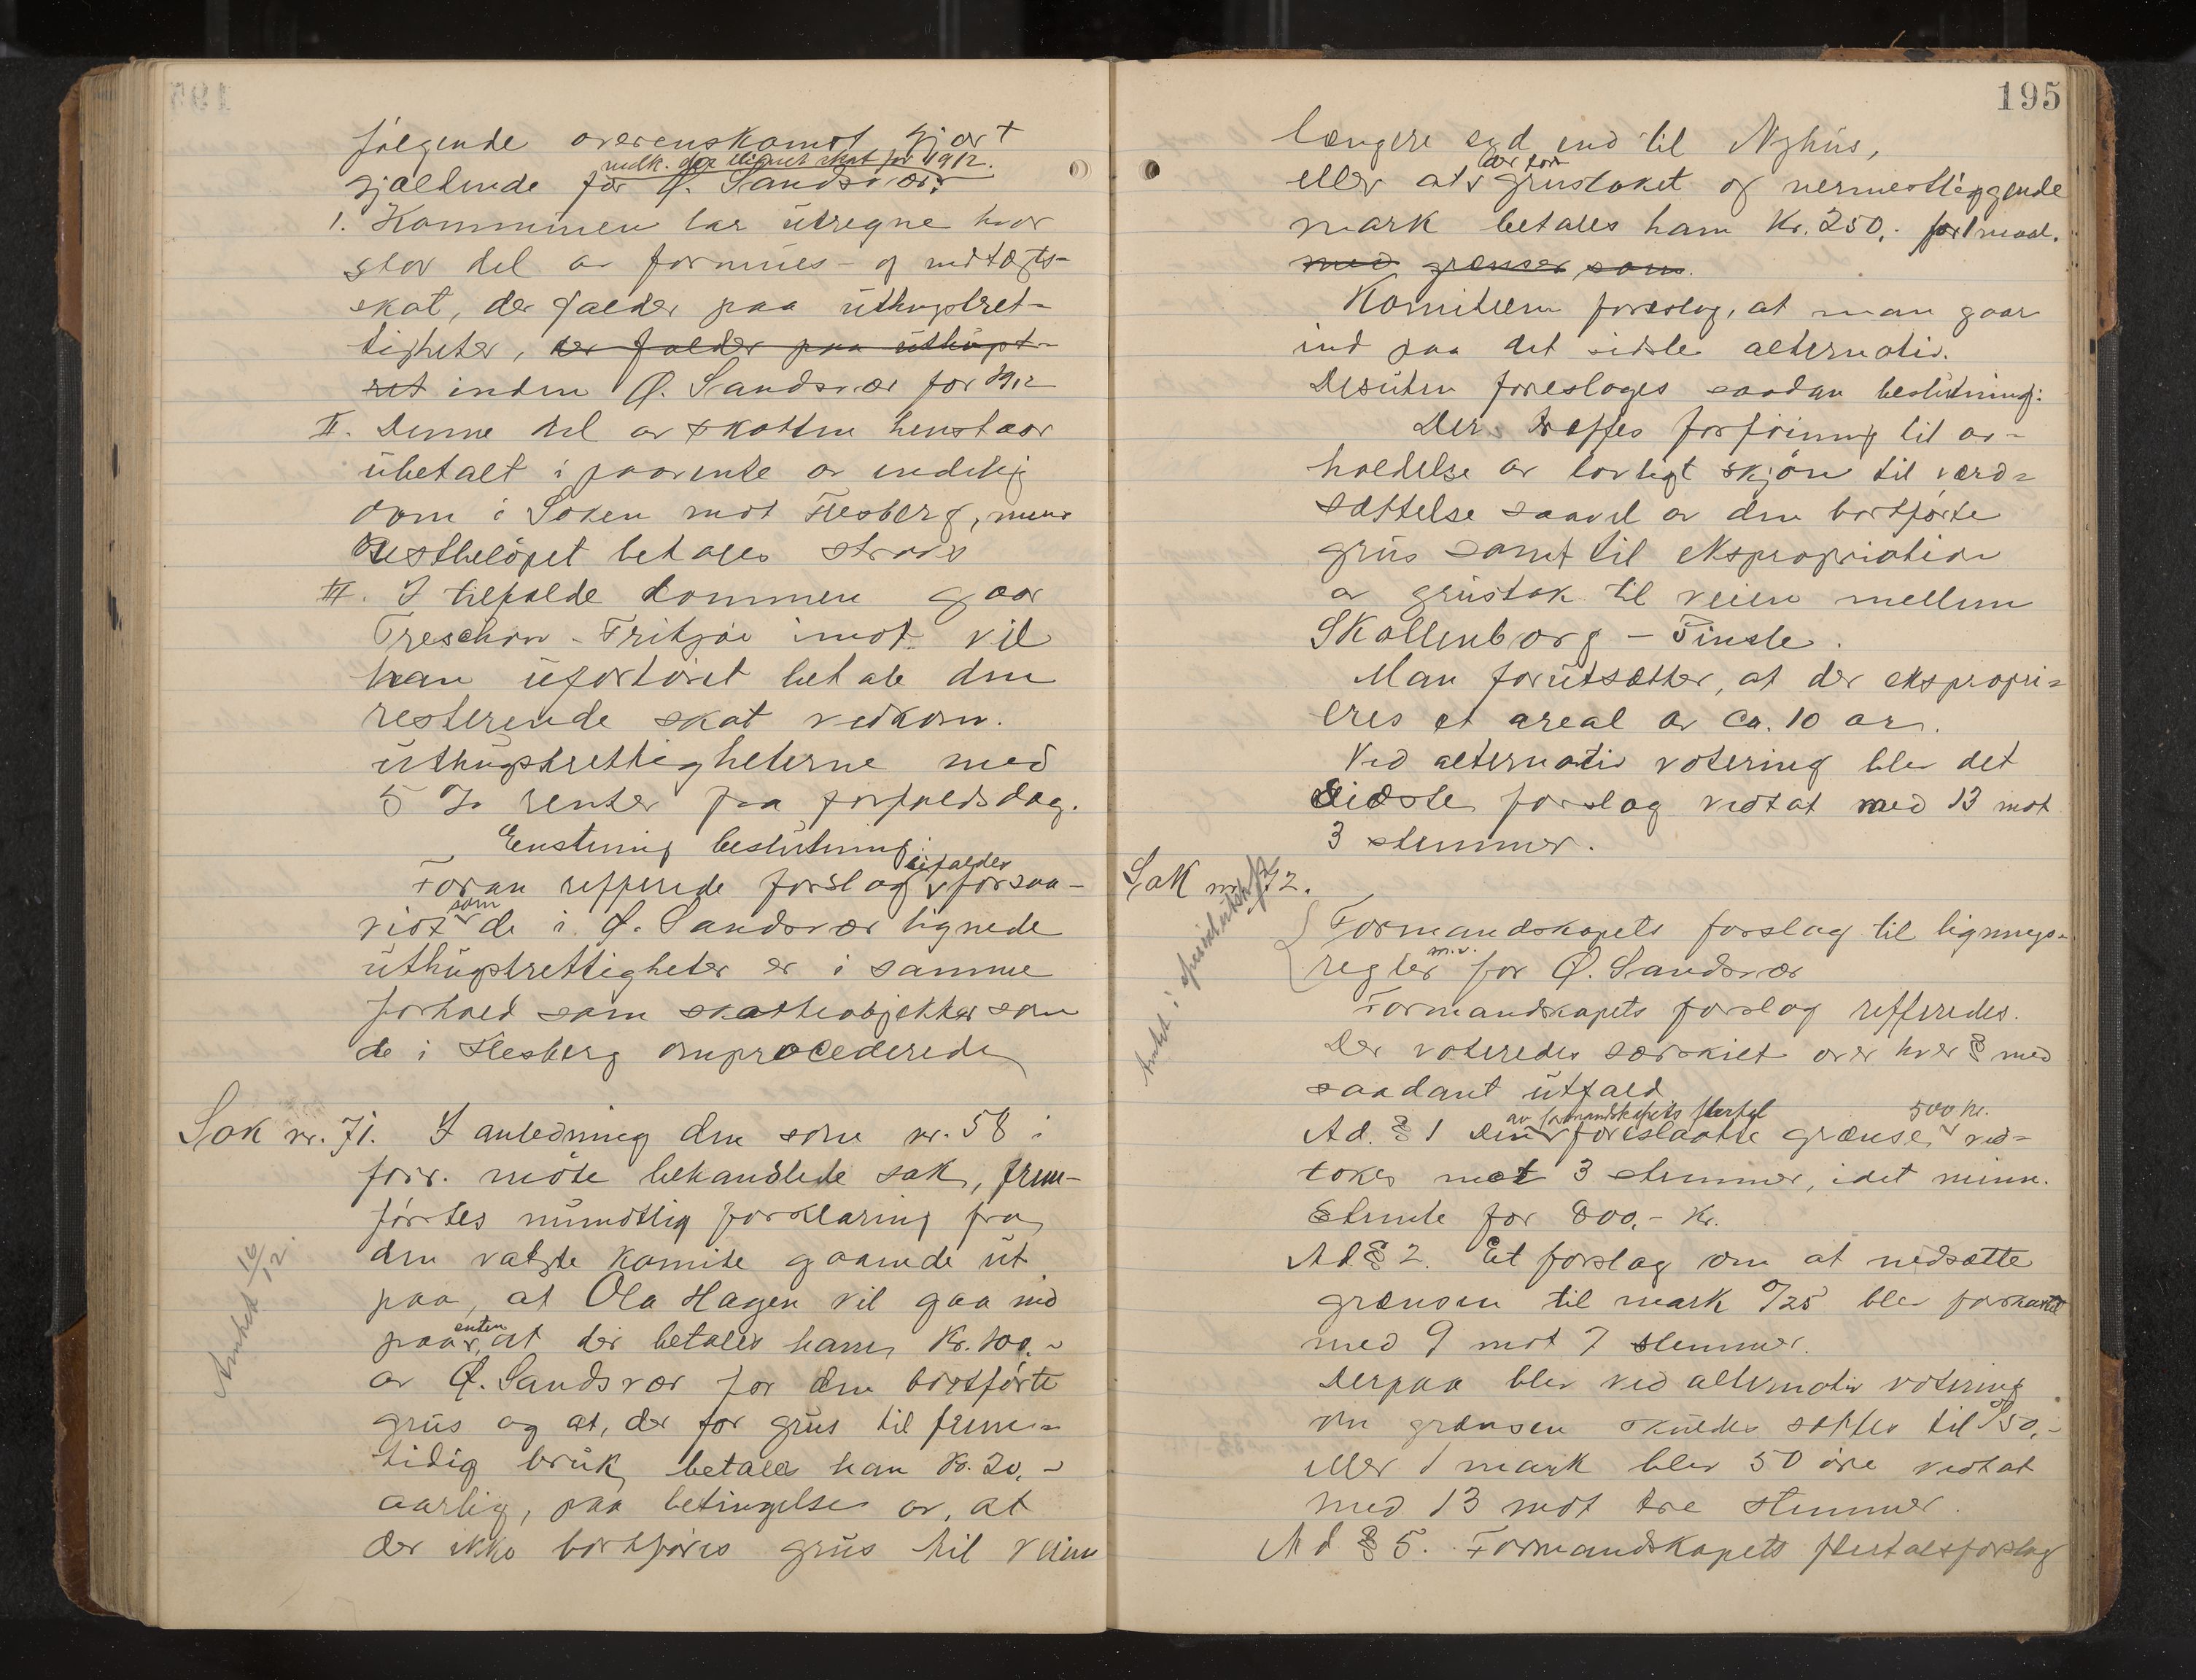 følgende overenskomst gjort
vedk. den lignet skat for 1912.
gjældende for Ø. Sandsvær:
1. Kommunen lar utregne hvor
stor del av formues- og indtægts-
skat, der falder paa uthugstret-
tigheter, der falder paa uthugst-
ret inden Ø. Sandsvær for 1912
II. Denne del av skatten henstaar
ubetalt i paavente av endelig
dom i Saken mot Flesberg, mens
Restbeløpet betales straks
III. I tilfælde dommen gaar
Treschow-Fritzøe imot vil
han ufortøvet betale den
resterende skat vedkom.
uthugstrettigheterne med
5 % renter fra forfaldsdag.
Enstemmig beslutning:
Foran refferede forslag bifaldes forsaa-
vidt som de i Ø. Sandsvær lignede
uthugstrettigheter er i samme
forhold som skatteobjekter som
de i Flesberg omprocederede
Sak nr. 71. I anledning den som nr. 58 i
forr. møte behandlede sak, frem-
førtes mundtlig forklaring fra
den valgte komite gaaende ut
paa, at Ola Hagen vil gaa ind
paa enten, at der betales ham Kr. 100.-
av Ø. Sandsvær for den bortførte
grus og at, der for grus til frem-
tidig bruk betales han Kr. 20,-
aarlig, paa betingelse av, at
der ikke bortføres grus til veien
Anket 16/12.
195
længere syd end til Nyhus,
eller at der for grustaket og nermestliggende
mark betales ham Kr. 250,- for
med grænser som.
Komiteen foreslog, at man gaar
ind paa det sidste alternativ.
Desuten foreslages saadan beslutning:
Der træffes forføining til av-
holdelse av lovligt skjøn til værd-
sættelse saavel av den bortførte
grus samt til ekspropriation
av grustak til veien mellem
Skollenborg - Tinste.
Man forutsætter, at der ekspropri-
eres et areal av ca. 10 ar.
Ved alternativ votering blev det
sidste forslag vedtat med 13 mot
3 stemmer.
Sak nr. 72.
Formandskapets forslag til lignings-
regler m.v. for Ø. Sandsvær
Formandskapets forslag refferedes.
Der voteredes særskilt over hver § med
saadant utfald
Ad. § 1 Den av formandskapets flertal foreslaatte grænse 500 kr. ved-
tokes mot 3 stemmer, idet minn.
stemte for 800,- Kr.
Ad § 2. Et forslag om at nedsætte
grænsen til mark 0/25 blev forkastet
med 9 mot 7 stemmer.
Derpaa blev ved alternativ votering
om grænsen skulde sættes til 0/50,-
eller 1 mark blev 50 øre vedtat
med 13 mot tre stemmer.
Ad § 5. Formandskapets flertalsforslag